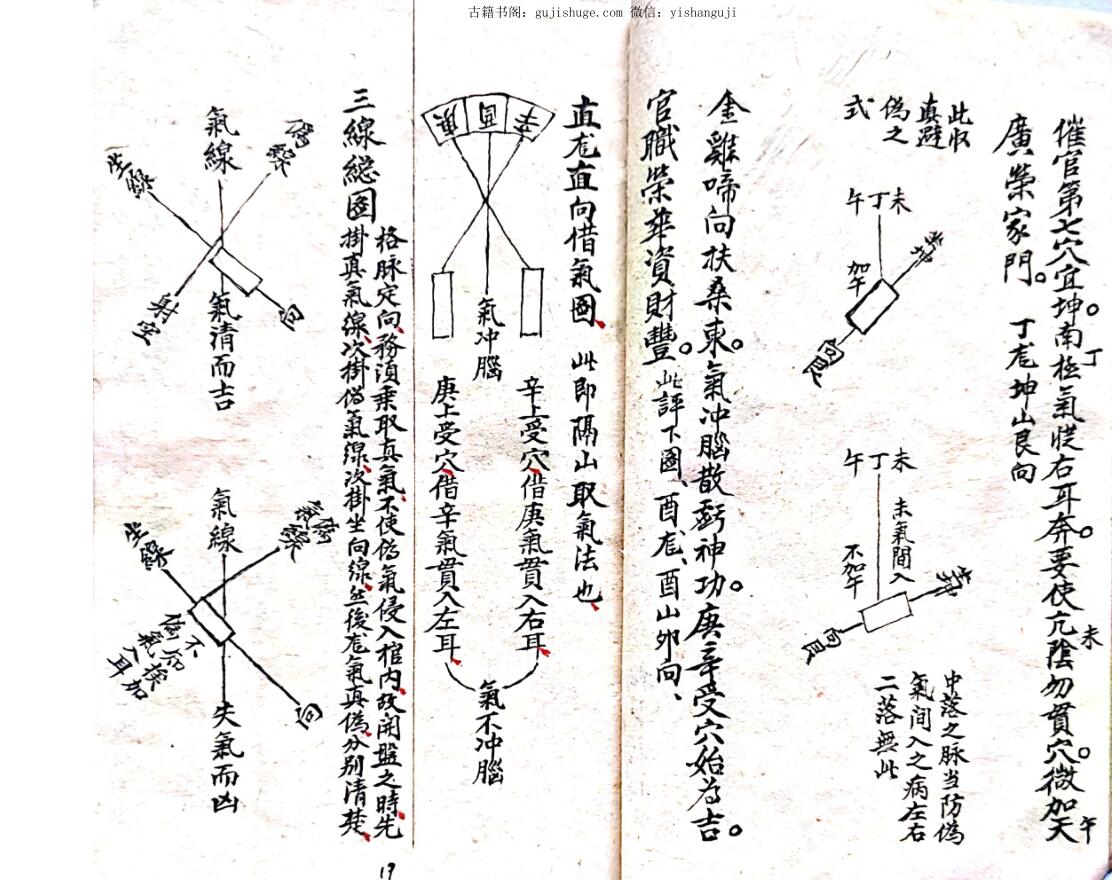 古籍书阁：gujishuge.com 微信：yishanguji
催官第七穴宜坤南極氣從右耳奔要使亢陰勿貫穴微加天
丁
未
午
廣榮家門 丁尨坤山艮向
此收
真避
偽之
式
未
丁
午
加午
坐坤
向艮
未
丁
午
未氣間入
不加午
坐坤
向艮
中落之脉当防偽
氣間入之病左右
二落無此
金雞啼向扶桑東氣冲腦散虧神功庚辛受穴始為吉
官職榮華資財豐 此評下圖、酉尨、酉山卯向、
直尨直向借氣圖、此即隔山取氣法也、
辛
酉
庚
氣冲腦
辛上受穴借庚氣貫入右耳
庚上受穴借辛氣貫入左耳
氣不冲腦
三線総圖
格脉定向務須乗取真氣不使偽氣侵入棺内故開盤之時先
掛真氣線次掛偽氣線次掛坐向線然後尨氣真偽分別清楚
氣線
偽線
坐線
向
射空
氣清而吉
氣線
偽氣線
坐線
向
不知挨加
偽氣入耳
失氣而凶
19